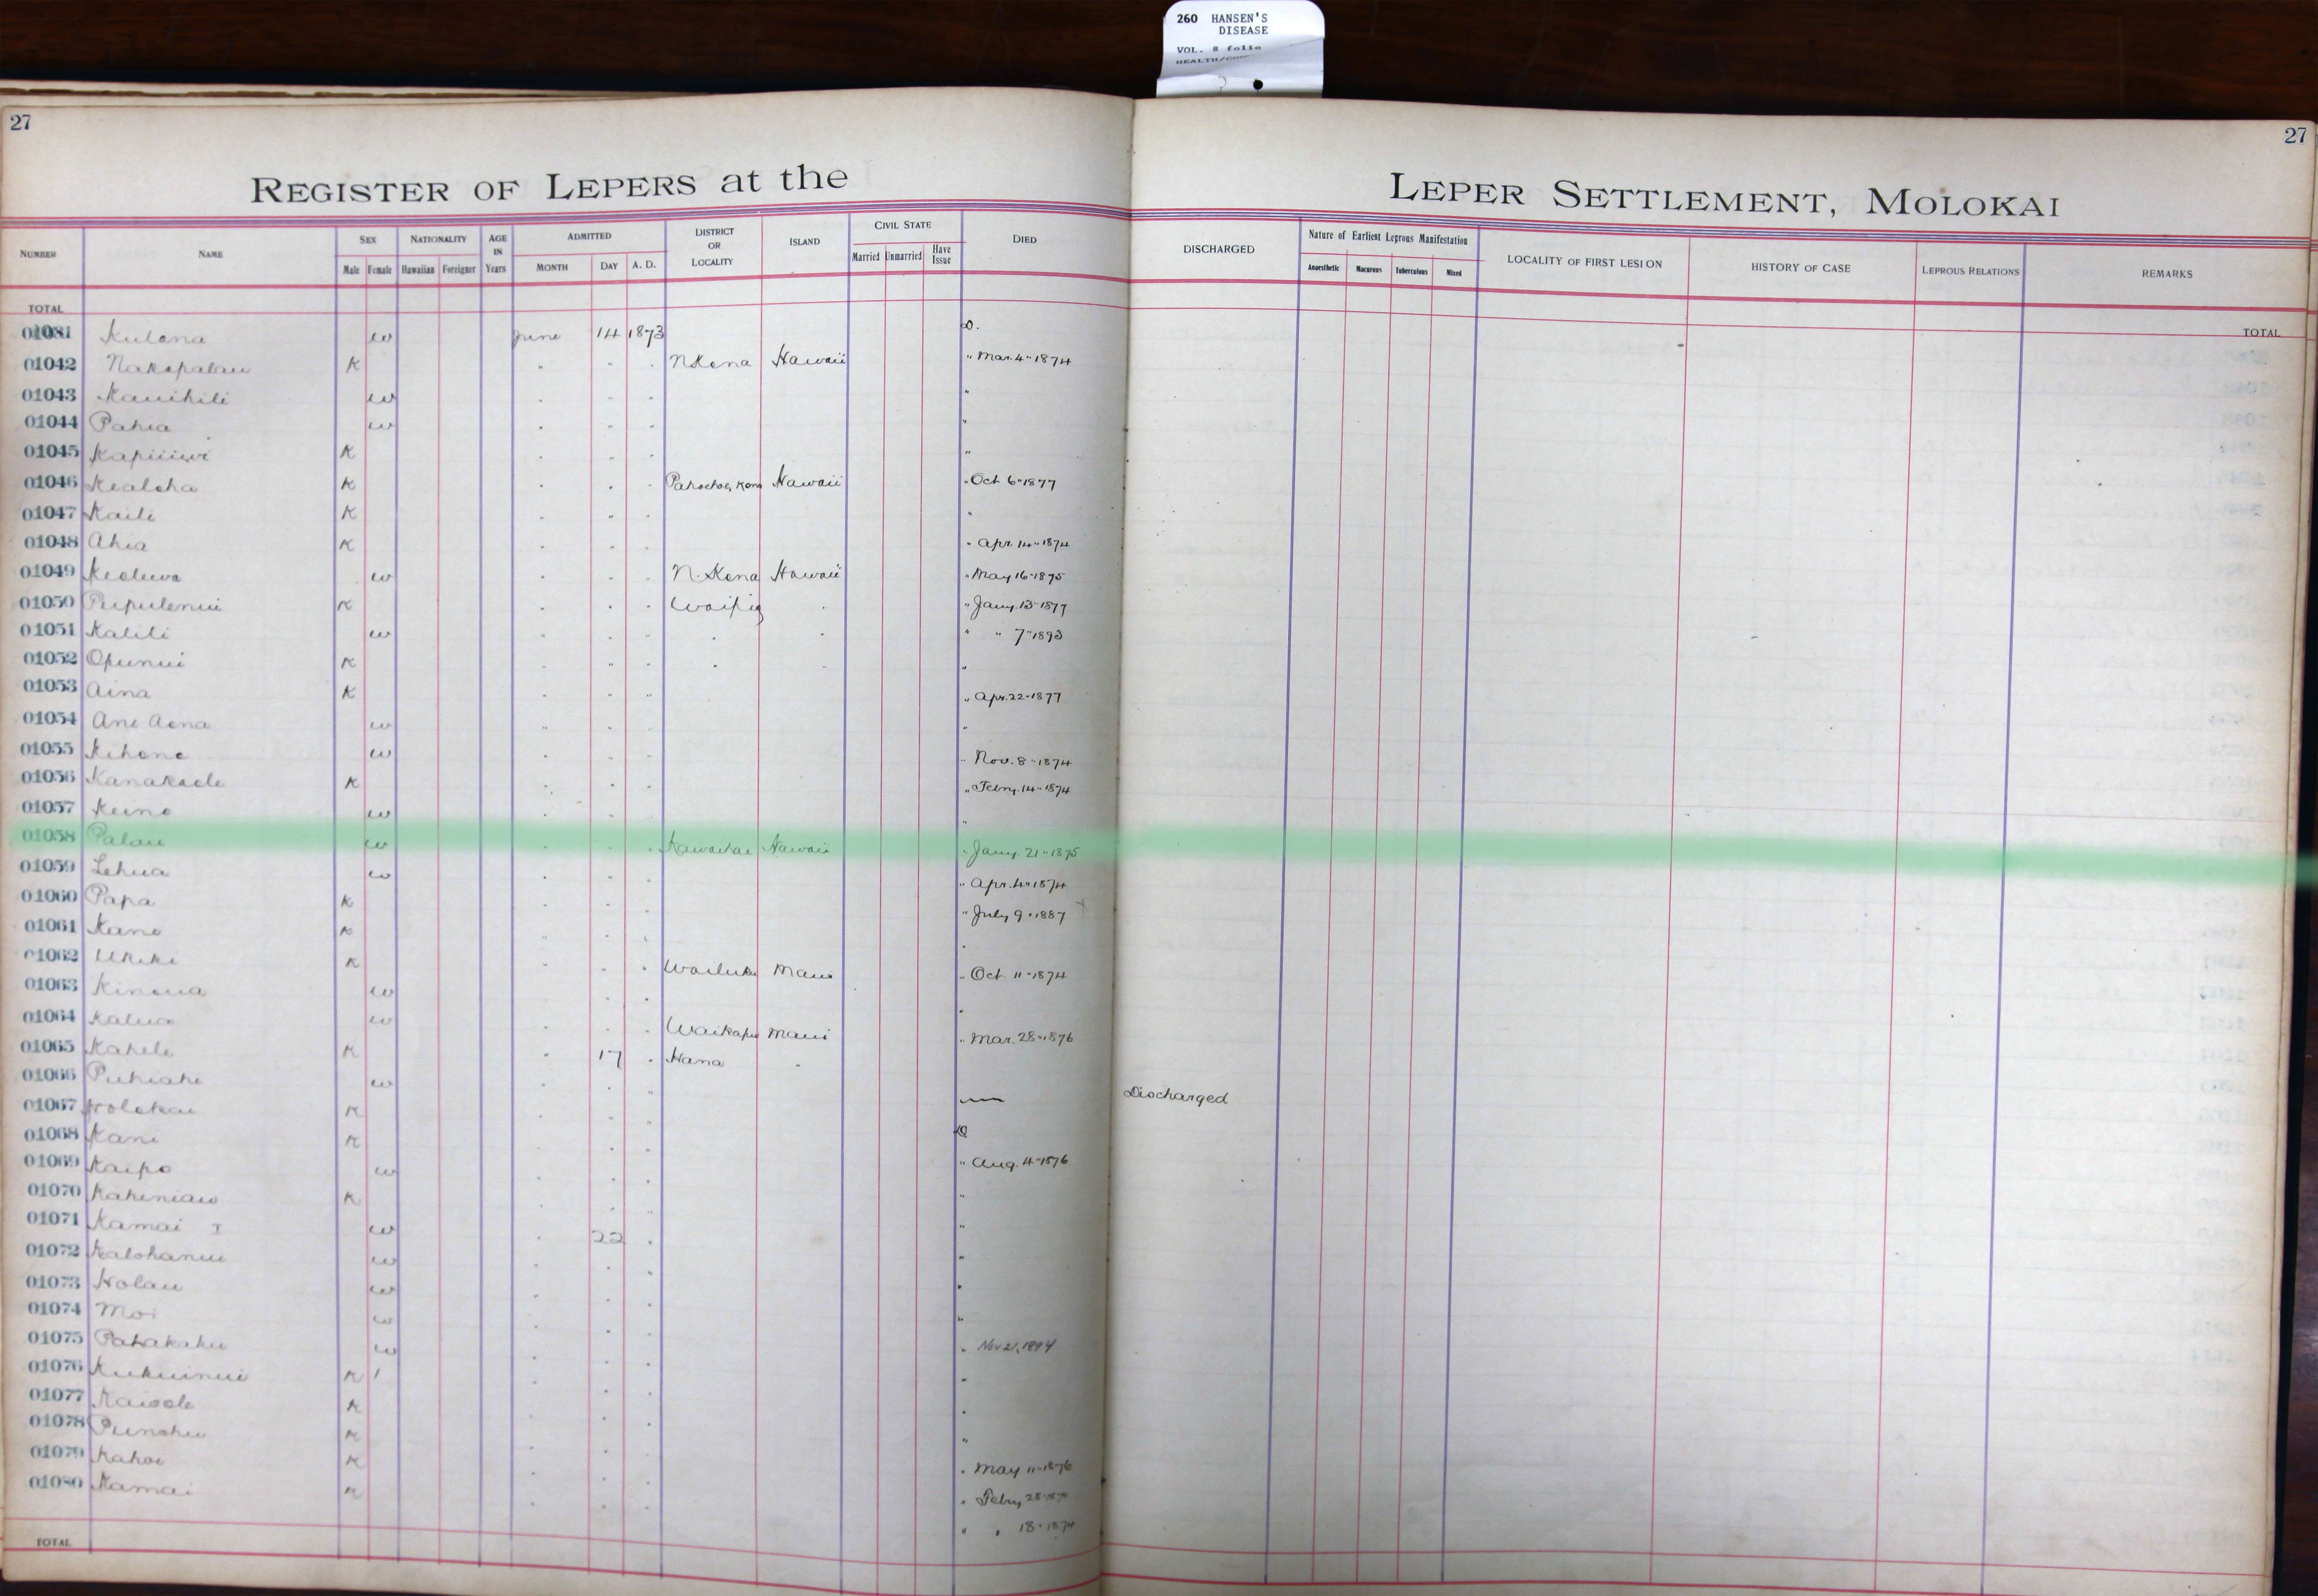 260 HANSEN'S
DISEASE
VOL. 8 folio
27
27
REGISTER OF LEPERS at the
LEPER SETTLEMENT, MOLOKAI
NUMBER NAME SEX NATIONALITY AGE IN Years ADMITTED DISTRICT OR LOCALITY ISLAND CIVIL STATE DIED DISCHARGED Nature of Earliest Leprous Manifestation LOCALITY OF FIRST LESION HISTORY OF CASE LEPROUS RELATIONS REMARKS
Male Female Hawaiian Foreigner MONTH DAY A. D. Married Unmarried Have Issue Anaesthetic Macurous Tuberculous Mixed
TOTAL TOTAL
Kulana w June 14 1873 D.
01042 Nakapalau K " " " N Kona Hawaii " Mar. 4 " 1874
01043 Kauihili w " " " "
01044 Pahia w " " " "
01045 K " " " "
01046 Kealoha K " " " Hawaii " Oct 6 " 1877
01047 Kaili K " " " "
01048 Ahia K " " " " Apr. 14 " 1874
01049 w " " " N. Kona Hawaii " May 16 " 1875
01050 Pupulenui K " " " Waipio " " Jany. 13 " 1877
01051 Kalili w " " " " " " " 7 " 1893
01052 Opunui K " " " " " "
01053 Aina K " " " " Apr. 22 " 1877
01054 Ane Aona w " " " "
01055 Kihene w " " " " Nov. 8 " 1874
01056 Kanakaole K " " " " Febry. 14 " 1874
01057 Keino w " " " "
01058 Palau w " " " Kawaihae Hawaii " Jany. 21 " 1875
01059 Lehua w " " " " Apr. 4 " 1874
01060 Papa K " " " " July 9 " 1887
01061 Kane K " " " "
01062 Ukeke K " " " Wailuku Maui " Oct. 11 " 1874
01063 Kinoua w " " " "
01064 Kalua w " " " Waikapu Maui " Mar. 28 " 1876
01065 Kahele K " 17 " Hana "
01066 Puhiahi w " " " Discharged
01067 Holokai K " " " D
01068 Kani K " " " " Aug. 4 " 1876
01069 Kaipo w " " " "
01070 Kaheniau K " " " "
01071 Kamai I w " 22 " "
01072 Kalohanui w " " " "
01073 Holau w " " " "
01074 Moi w " " "
01075 Pahakahu w " " " " Nov 21, 1894
01076 Kukuinui K " " " "
01077 Kaiole K " " " "
01078 Punohu K " " " "
01079 Kahoe K " " " " May 11 " 1876
01080 Kamai K " " " " Febry 28
" " 18 " 1874
TOTAL